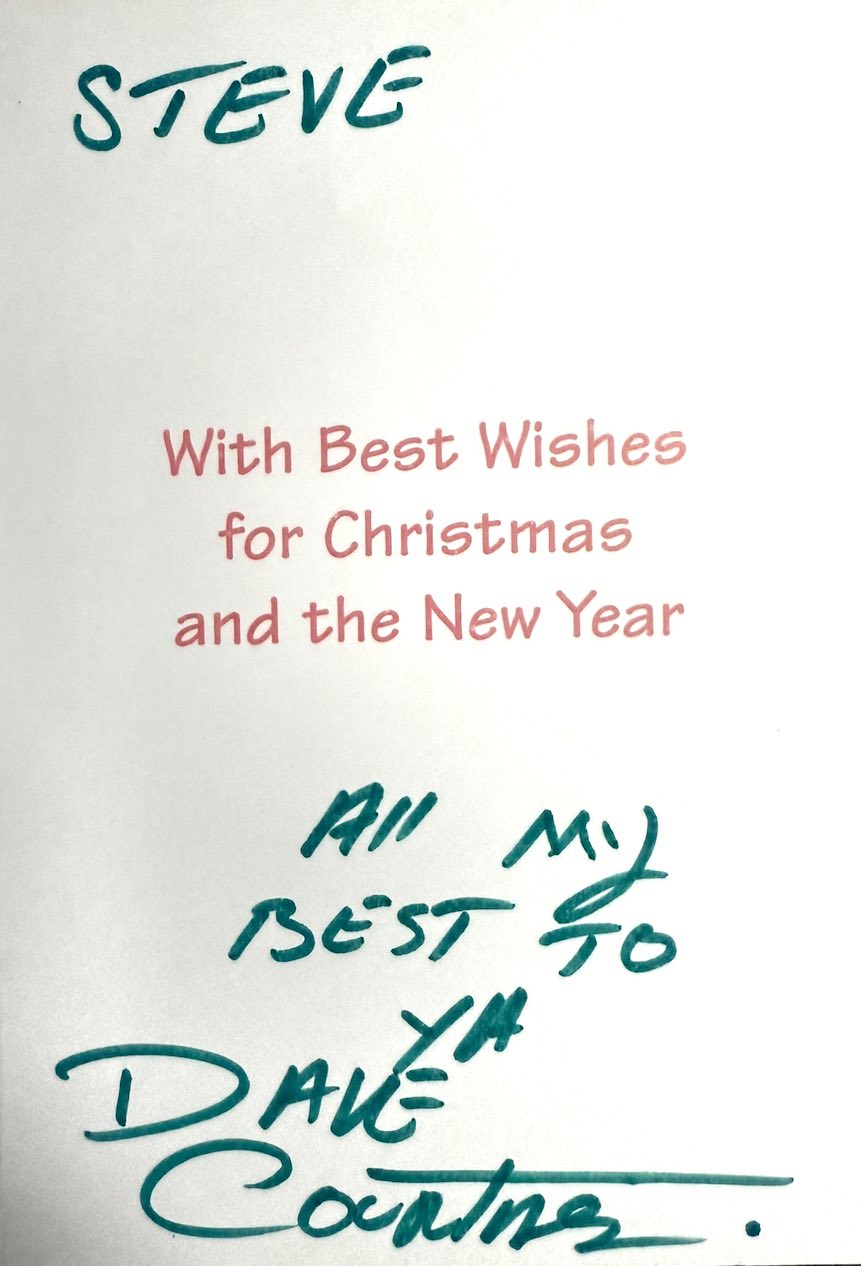 STEVE
With Best Wishes
for Christmas
and the New Year
All My
BEST TO
YA
DAVE
Courtney.